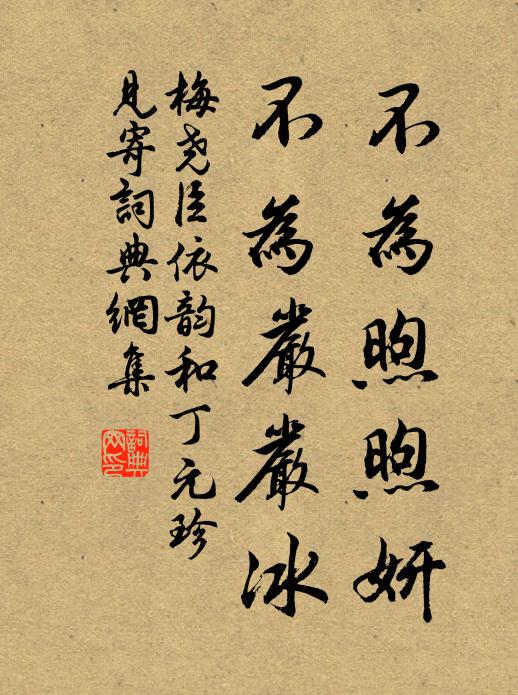 不為煦煦妍
不為嚴嚴冰
梅堯臣依韵和丁元珍
見寄詞典網集
詞典
网印